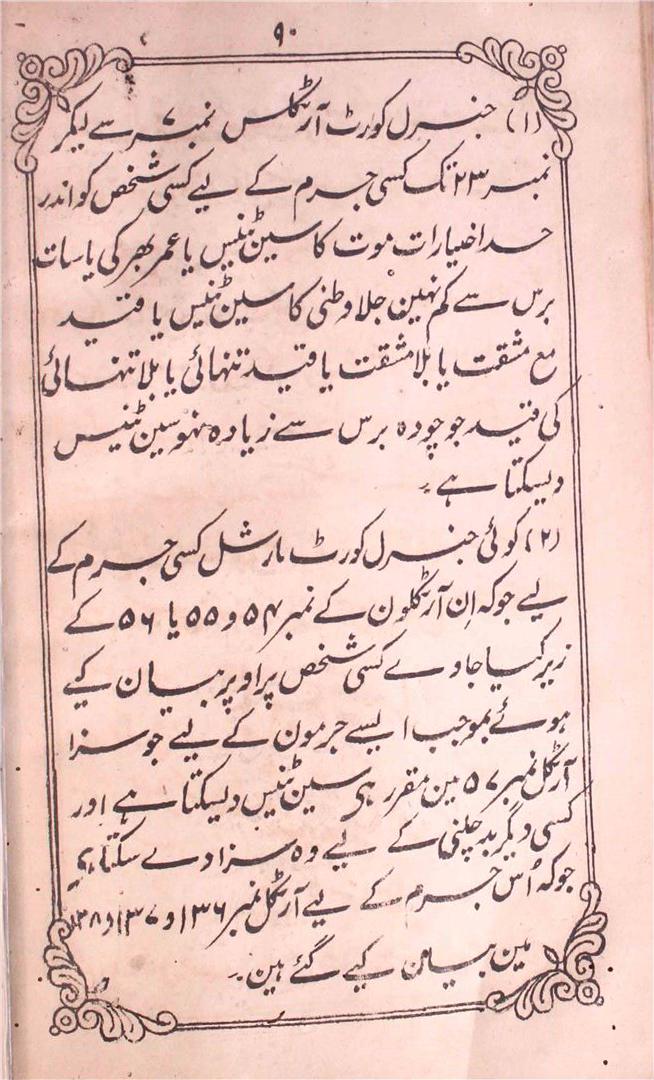 ۹۰
(۱) جنرل کورٹ آرٹکلس نمبر ۷ سے لیکر
نمبر ۲۳ تک کسی جرم کے لیے کسی شخص کو اندر
حد اختیارات موت کا سین ٹینس یا عمر بھر کی یا سات
برس سے کم نہین جلا وطنی کا سین ٹینس یا قید
مع مشقت یا بلا مشقت یا قید تنہائی یا بلا تنہائی
کی قید جو چودہ برس سے زیادہ نہو سین ٹینس
دیسکتا ہے۔
(۲) کوئی جنرل کورٹ مارشل کسی جرم کے
لیے جو کہ ان آرٹکلون کے نمبر ۵۴ و ۵۵ یا ۵۶ کے
زیر کیا جاوے کسی شخص پر اوپر بیان کیے
ہوئے بموجب ایسے جرمون کے لیے جو سزا
آرٹکل نمبر ۵۷ مین مقرر ہی سین ٹینس دیسکتا ہے اور
کسی دیگر بد چلنی کے لیے وہ سزا دے سکتا ہی
جو کہ اُس جرم کے لیے آرٹکل نمبر ۱۳۶ و ۱۳۷ و ۱۳۸
مین بیان کیے گئے ہین۔